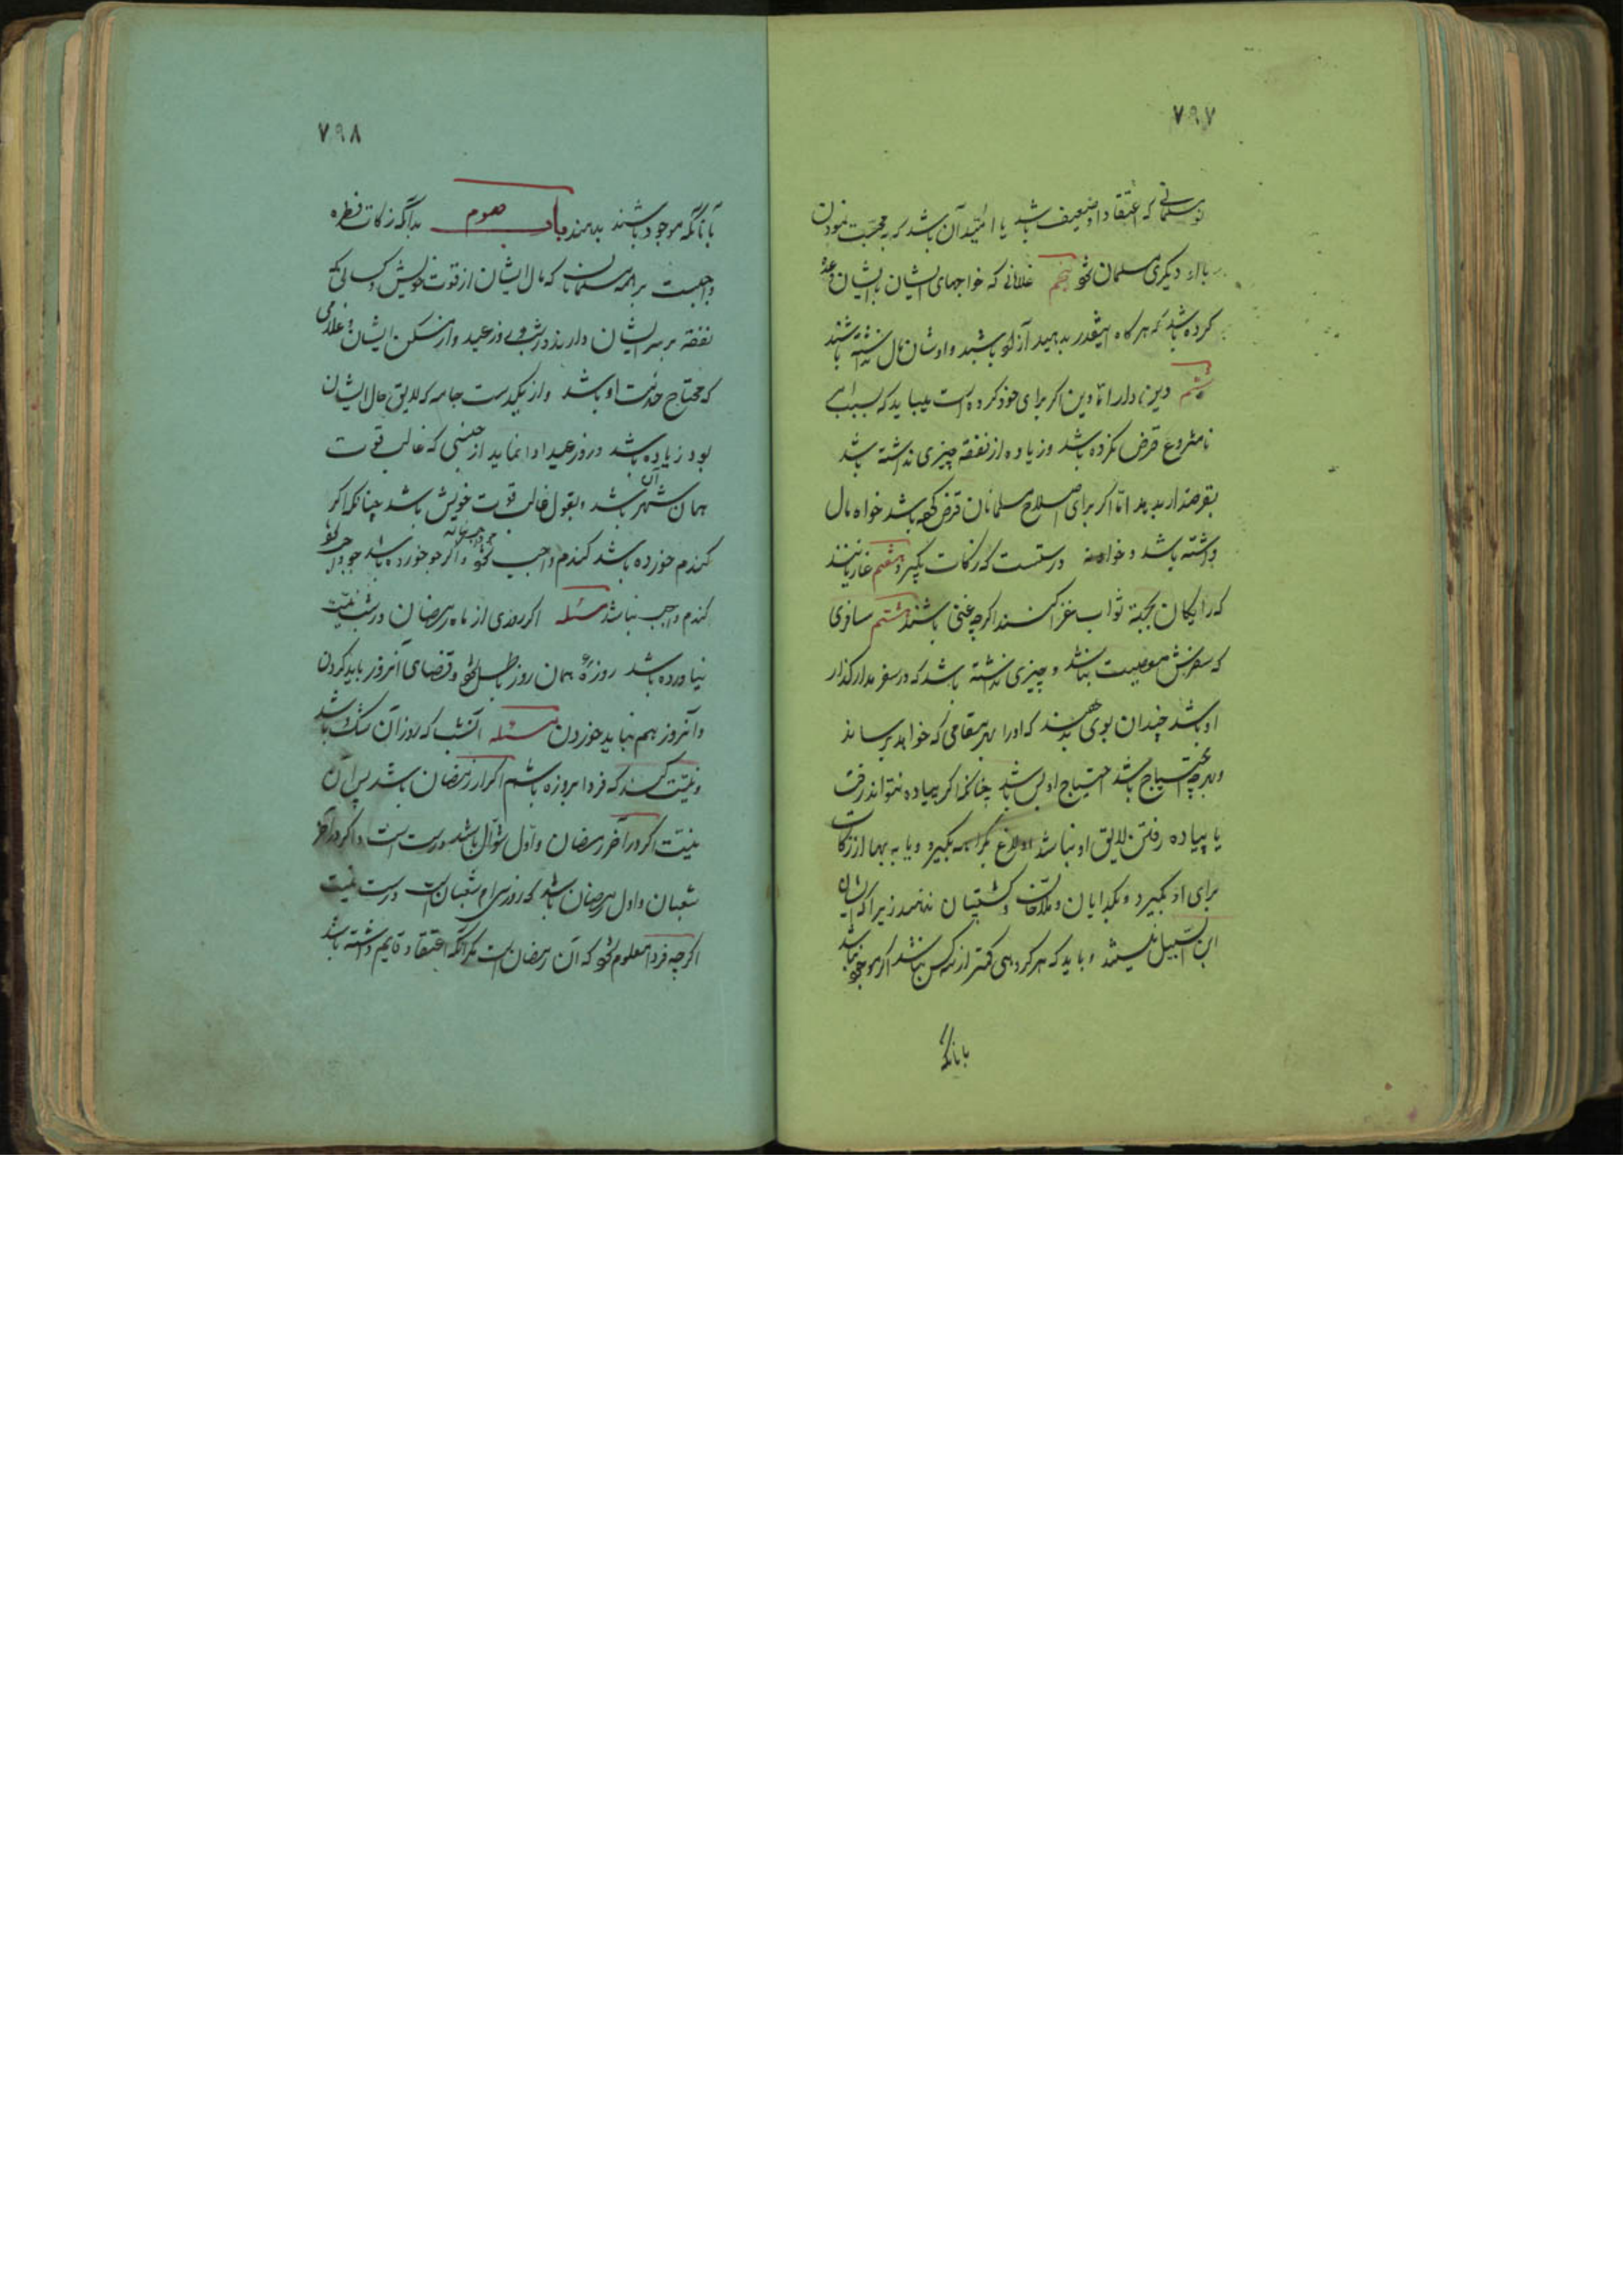 ۷۹۷
نومسلمانی که اعتقاد او ضعیف باشد یا امید آن باشد که به محبت نمودن
باو دیگری مسلمان شود پنجم غلامانی که خواجهای ایشان بایشان وعده
کرده باشد که هرگاه اینقدر بدهید آزاد باشید و اوشان مال نداشته باشند
ششم دین دار اما دین اگر برای خود کرده است میباید که بسبب امر
نامشروع قرض نکرده باشد و زیاده از نفقه چیزی نداشته باشد
بقرضدار بدهد اما اگر برای صلاح مسلمانان قرض کرده باشد خواه مال
داشته باشد و خواه نه درستست که زکات بگیرد هفتم غازیانند
که رایگان بجهة ثواب غزا کنند اگرچه غنی باشند هشتم مسافری
که سفرش معصیت نباشد و چیزی نداشته باشد که در سفر مدار گذار
او باشد چندان بوی دهند که او را بهر مقامی که خواهد برساند
و بهرچه احتیاج باشد احتیاج او بس باشد چنانکه اگر پیاده نتواند رفت
یا پیاده رفتن لایق او نباشد اولاغ بکرایه بگیرد و یا به بها از زکات
برای او بگیرد و بگدایان و ملاقات و کشتیبان ندهند زیرا که ایشان
ابن السبیل نیستند و باید که هر گروهی کمتر از سه کس نباشد اگر موجود نباشد
بانانکه
۷۹۸
بآنانکه موجود باشند بدهند باب صوم بدانکه زکات فطره
واجبست بر همه مسلمانان که مال ایشان از قوت خویش و کسانی که
نفقه بر سر ایشان دارند در شب و روز عید و از مسکن ایشان و غلامی
که محتاج خدمت او باشد و از یکدست جامه که لایق حال ایشان
بود زیاده باشد در روز عید ادا نماید از جنسی که غالب قوت
همان شهر باشد و بقول غالب قوت خویش باشد چنانکه اگر
گندم خورده باشد گندم واجب شود و اگر جو خورده باشد جو واجب شود
گندم واجب نباشد مسئله اگر روزی از ماه رمضان در شب نیت
نیاورده باشد روزهٔ همان روز باطل شود و قضای آنروز باید کردن
و آنروز هم نباید خوردن مسئله آنشب که روز آن شک باشد
و نیت کند که فردا بروزه باشم اگر از رمضان باشد پس آن
نیت اگر در آخر رمضان و اول شوال باشد درست است و اگر در آخر
شعبان و اول رمضان باشد که روز سی ام شعبان است درست نیست
اگرچه فردا معلوم شود که آن رمضان است مگر آنکه اعتقاد قایم داشته باشد